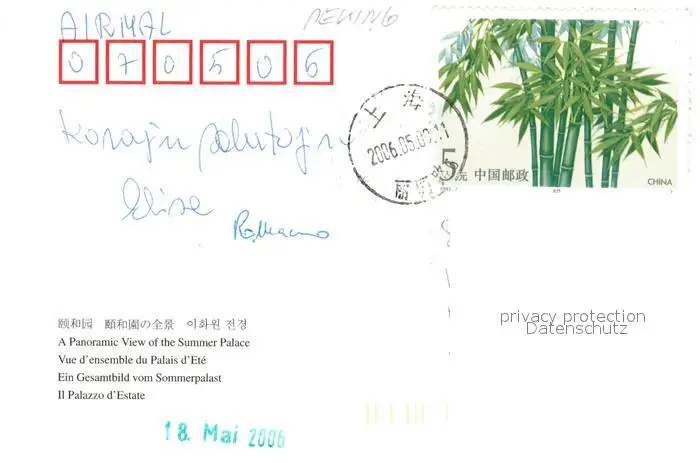 AIRMAL
PEKING
0 7 0 5 0 6
Korajn salutojn
Elise
Romano
上海
2006.05.09.11
5元 中国邮政
CHINA
privacy protection
Datenschutz
颐和园 頤和園の全景 이화원 전경
A Panoramic View of the Summer Palace
Vue d'ensemble du Palais d'Eté
Ein Gesamtbild vom Sommerpalast
Il Palazzo d'Estate
18. Mai 2006